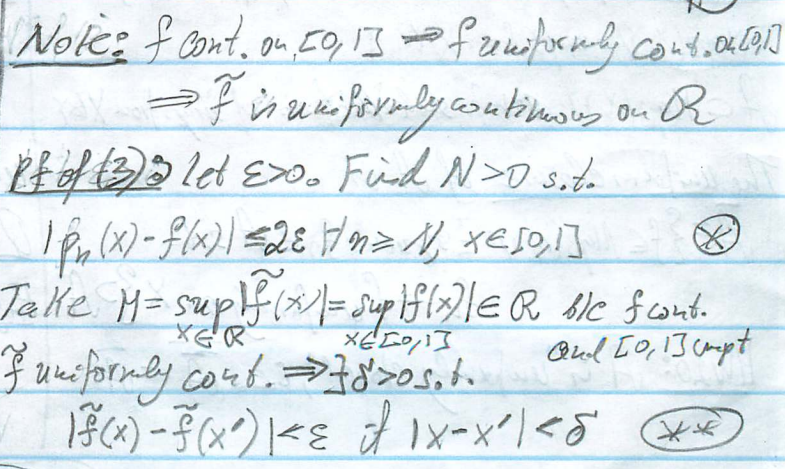 Note: f cont. on [0,1] ⇒ f uniformly cont. on [0,1]
⇒ f̃ is uniformly continuous on ℝ
Pf of (3): let ε>0. Find N>0 s.t.
|pₙ(x) - f(x)| ≤ 2ε ∀n ≥ N, x∈[0,1] (*)
Take M = sup_{x∈ℝ} |f̃(x)| = sup_{x∈[0,1]} |f(x)| ∈ ℝ b/c f cont.
and [0,1] cmpt
f̃ uniformly cont. ⇒ ∃δ>0 s.t.
|f̃(x) - f̃(x')| < ε if |x-x'| < δ (**)